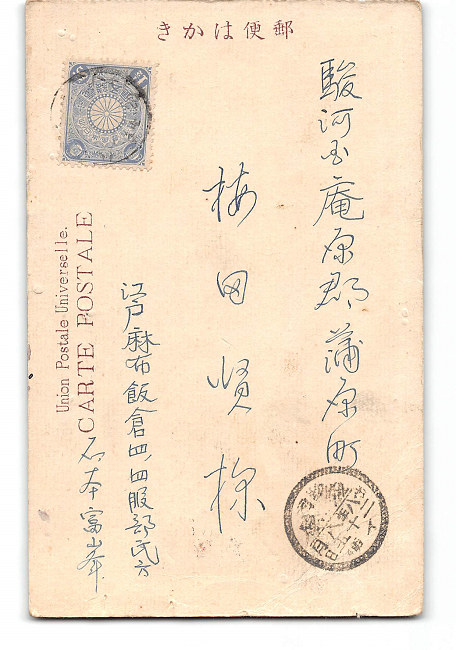 きかは便郵
駿河国庵原郡蒲原町
梅田賢様
江戸麻布飯倉四ノ四服部氏方
石本富山峯
Union Postale Universelle.
CARTE POSTALE